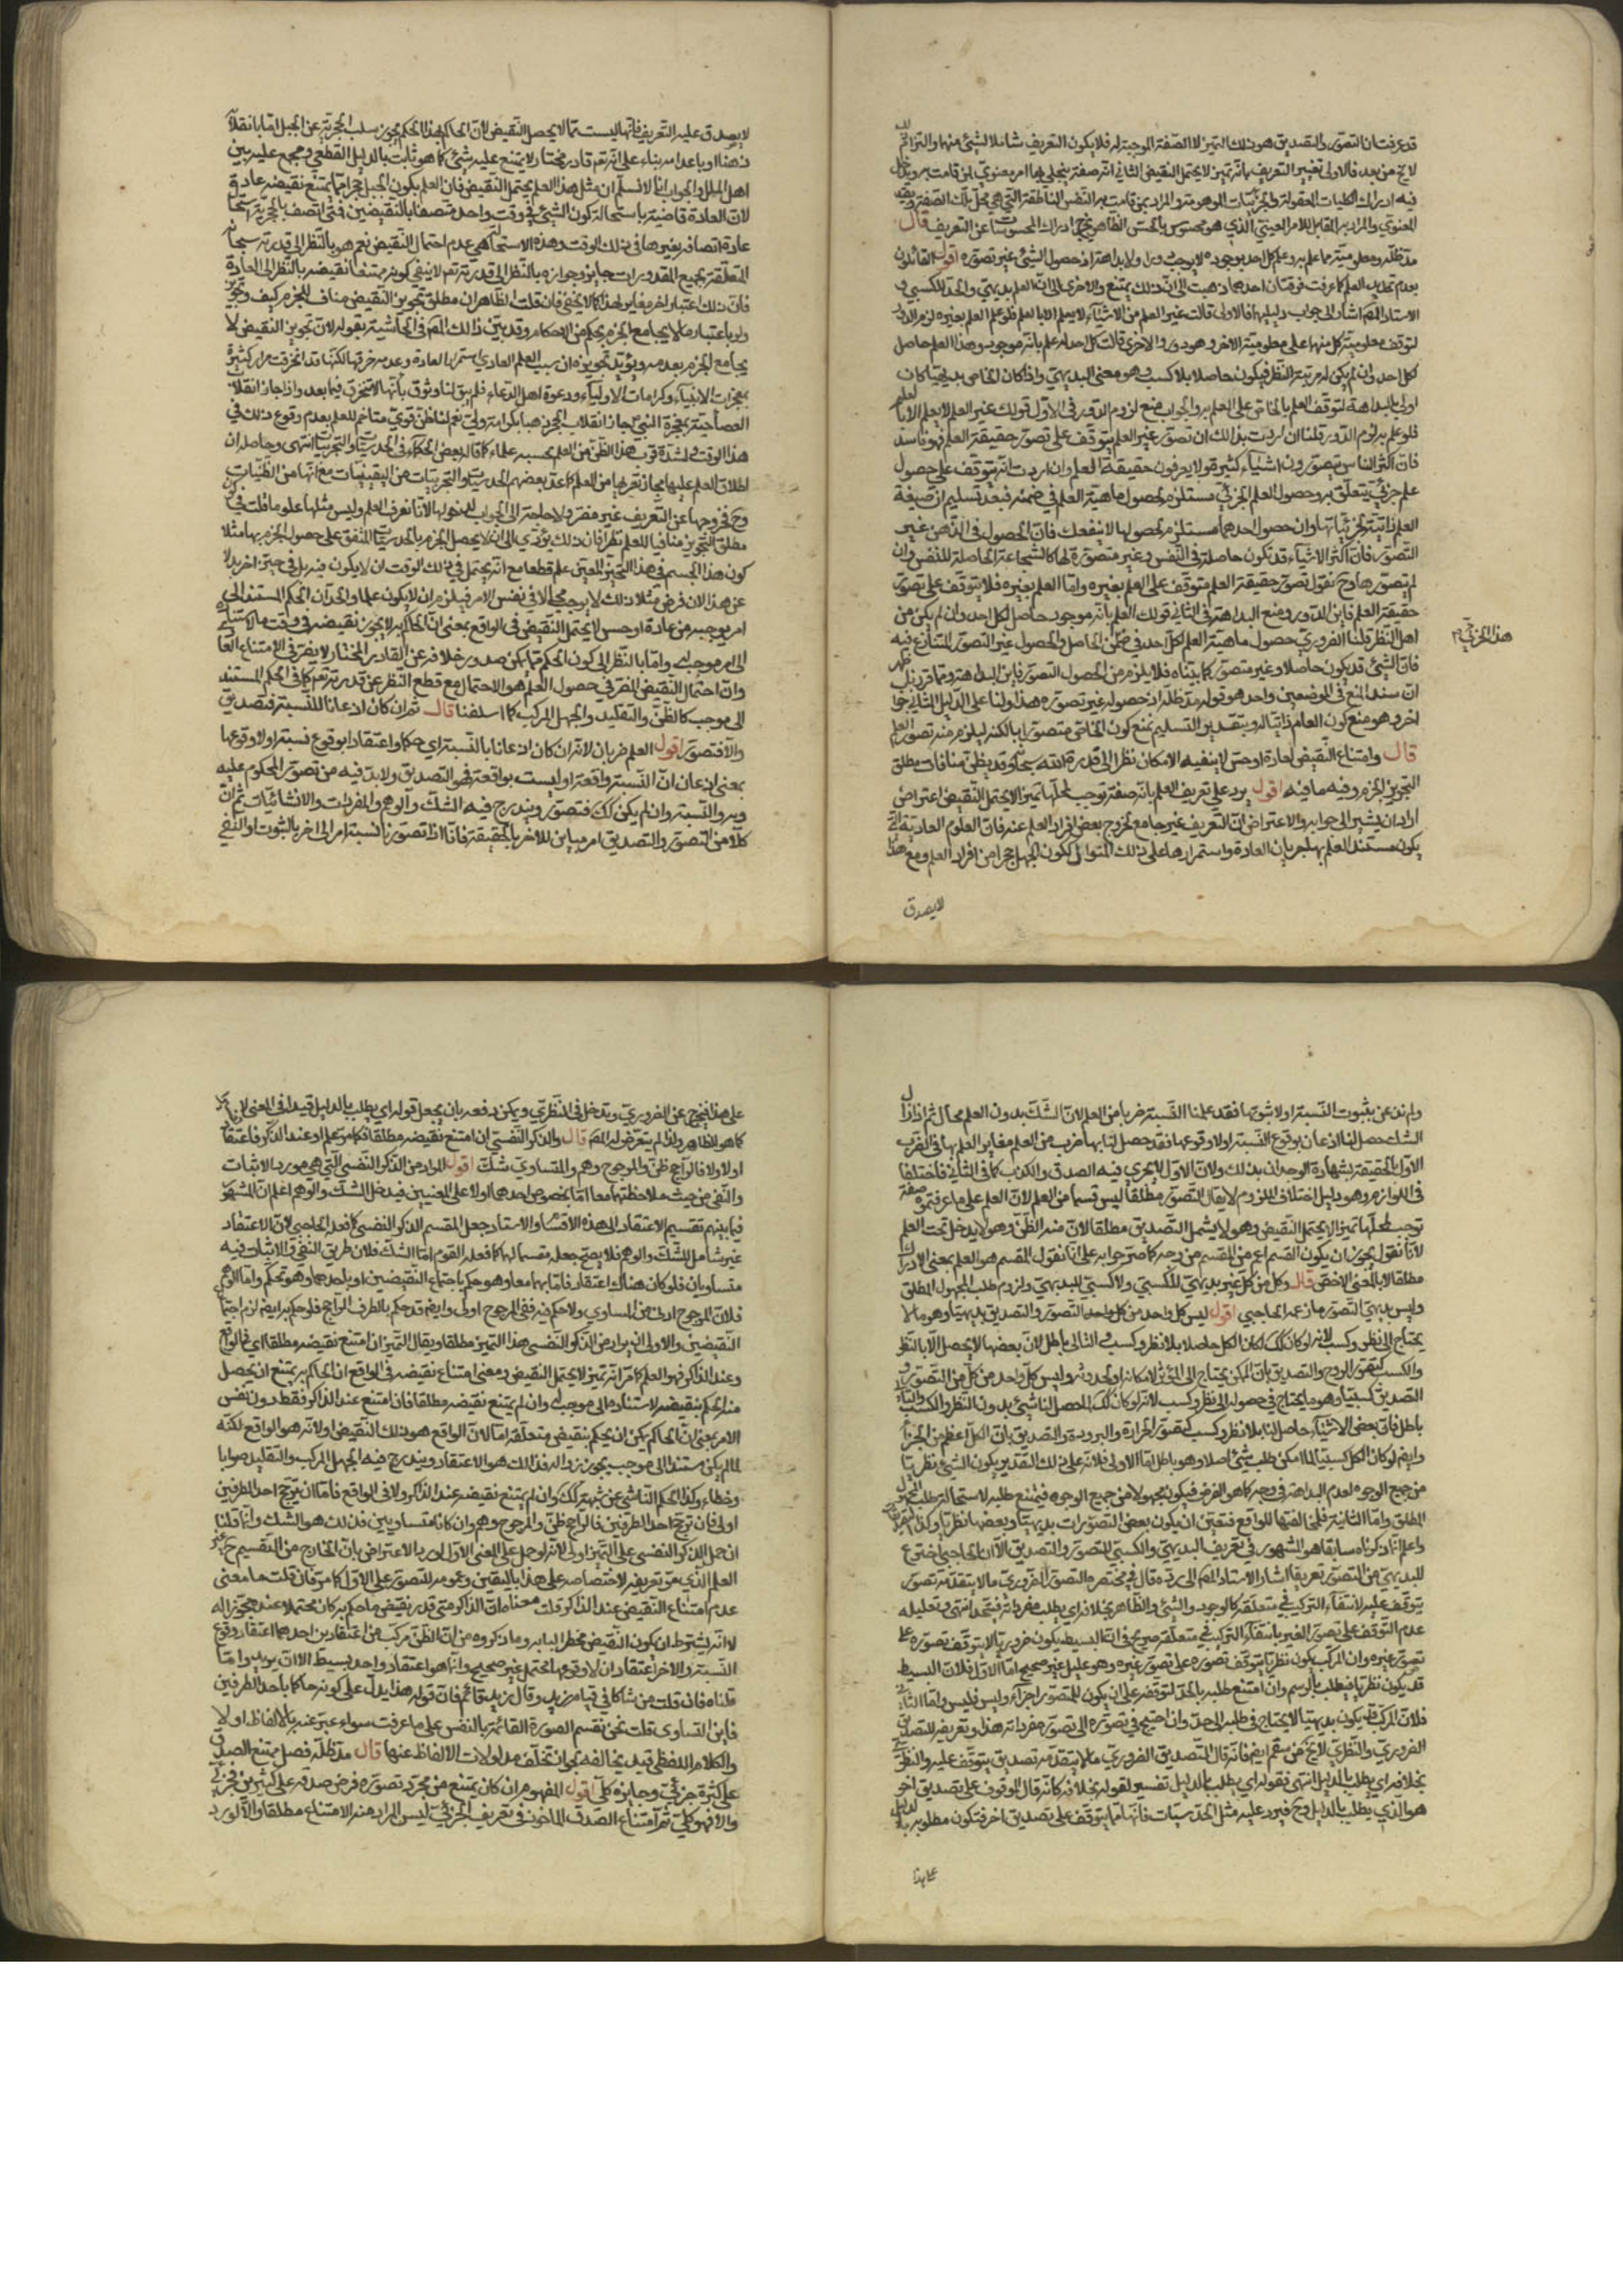 قد عرفت ان التصور والتصديق هو ذلك التميز لا الصفة الموجبة له فلا يكون التعريف شاملا لشيئ منهما والتزام
لايح من بعد فالاولى تغيير التعريف بانه تميز لا يحتمل النقيض الثاني انه صفة ينجلي بها امر معنوي لمن قامت به ويدخل
فيه ادراك الكليات المعقولة والجزئيات الموهومة والمراد بمن قامت به النفس الناطقة التي هي محل تلك الصفة
المعنوي والمراد به المقابل للامر العيني الذي هو محسوس بالحس الظاهر يخرج ادراك المحسوسات عن التعريف قال
مد ظله ومعلومية ما علم به وعلم كل احد بوجوده لا يوجب دورا ولا بداهة اذ حصول الشيئ غير تصوره اقول القائلون
بعدم تحديد العلم كما عرفت فرقتان احدهما ذهبت الى ان ذلك يمتنع والاخرى الى ان العلم بديهي والحد للكسبي و
الاستاد المص اشار الى جواب دليليهما فالاولى قالت غير العلم من الاشياء لا يعلم الا بالعلم فلو علم العلم بغيره لزم الدور
لتوقف معلومية كل منهما على معلومية الاخر وهو دور والاخرى قالت كل احد يعلم بانه موجود وهذا العلم حاصل
لكل احد وان لم يكن له مرتبة النظر فيكون حاصلا بلا كسب وهو معنى البديهي واذا كان الخاص بديهيا كان
اولى بالبداهة لتوقف العلم بالخاص على العلم به والجواب منع لزوم الدور في الاول قولك غير العلم لا يعلم الا بالعلم
فلو علم به لزوم الدور قلنا ان اردت بذلك ان تصور غير العلم يتوقف على تصور حقيقة العلم فهو فاسد
فان اكثر الناس يتصورون اشياء كثيرة ولا يعرفون حقيقة العلم وان اردت انه يتوقف على حصول
علم جزئي يتعلق به وحصول العلم الجزئي مستلزم لحصول ماهية العلم في ضمنه فبعد تسليم ان صيغة
العلم ذاتية لجزئياتها وان حصول احدهما مستلزم لحصولها لا ينفعك فان الحصول في الذهن غير
التصور فان اكثر الاشياء قد تكون حاصلة في النفس وغير متصورة لها كالشجاعة الحاصلة للنفس وان
لم تتصورها وح نقول تصور حقيقة العلم متوقف على العلم بغيره واما العلم بغيره فلا يتوقف على تصور
حقيقة العلم فاين الدور ومنع البداهة في الثاني قولك العلم بانه موجود حاصل لكل احد وان لم يكن من
اهل النظر قلنا الضروري حصول ماهية العلم لكل احد في ضمن الحاصل والحصول غير التصور المتنازع فيه
هذا الجزئي
فان الشيئ قد يكون حاصلا وغير متصور كما بيناه فلا يلزم من الحصول التصور فاين البداهة ومما قررنا ظهر
ان سند المنع في الموضعين واحد هو قوله مد ظله اذ حصوله غير تصوره هذا ولنا على الدليل الثاني جواب
اخر وهو منع كون العام ذاتيا له وبتقدير التسليم نمنع كون الخاص متصورا بالكنه ليلزم منه تصور العلم
قال وامتناع النقيض لعادة او حس لا ينفيه الامكان نظرا الى قدرة الله سبحانه وقد يظن منافات مطلق
التجويز الجزم وفيه ما فيه اقول يرد على تعريف العلم بانه صفة توجب لمحلها تميزا لا يحتمل النقيض اعتراض
اراد ان يشير الى جوابه والاعتراض ان التعريف غير جامع لخروج بعض افراد العلم عنه فان العلوم العادية التي
يكون مستند العلم بها جريان العادة واستمرارها على ذلك المنوال ككون الجبل حجرا من افراد العلم ومع هذا
لا يصدق
لا يصدق عليه التعريف فانها ليست مما لا يحتمل النقيض لان الحاكم بهذا الحكم يجوز سلب الحجرية عن الجبل اما بانقلابه
ذهبا او باعدامه بناء على انه تعم قادر مختار لا يمتنع عليه شيئ كما هو ثابت بالدليل القطعي ومجمع عليه بين
اهل الملل والجواب انا لا نسلم ان مثل هذا العلم يحتمل النقيض فان العلم بكون الجبل حجرا مما يمتنع نقيضه عادة
لان العادة قاضية باستحالة كون الشيئ في وقت واحد متصفا بالنقيضين فمتى اتصف بالحجرية استحال
عادة اتصافه بغيرها في ذلك الوقت وهذه الاستحالة هي عدم احتمال النقيض نعم هو بالنظر الى قدرته سبحانه
المتعلقة بجميع المقدورات جايز وجوازه بالنظر الى قدرته تعم لا ينفي كونه ممتنعا نقيضه بالنظر الى العادة
فان ذلك اعتبار اخر مغاير لهذا كما لا يخفى فان قلت الظاهر ان مطلق تجويز النقيض مناف للجزم كيف وتجويز
ولو باعتبار ما لا يجامع الجزم بحكم من الاحكام وقد بين ذلك المص في الحاشية بقوله لان تجويز النقيض لا
يجامع الجزم بعدمه ويؤيد تجويزه ان سبب العلم العادي استمرار العادة وعدم خرقها لكنها قد انخرقت مرارا كثيرة
بمعجزات الانبياء وكرامات الاولياء ودعوة اهل الدعاء فلم يبق لنا وثوق بانها لا تنخرق فيما بعد واذا جاز انقلاب
العصا حية بمعجزة النبي جاز انقلاب الحجر ذهبا بكرامة ولي نعم لنا ظن قوي متاخم للعلم بعدم وقوع ذلك في
هذا الوقت ولشدة قرب هذا الظن من العلم يحسبه علما كما قاله بعض الحكماء في الحدسيات والتجربيات انتهى وحاصله ان
اطلاق العلم عليها مجاز لقربها من العلم كما عد بعضهم الحدسيات والتجربيات من اليقينيات مع انها من الظنيات
وح فخروجها عن التعريف غير مضر ولا حاجة الى الجواب لدخولها لانا نعرف العلم وليس مثلها علوما قلت في كون
مطلق التجويز منافيا للعلم نظر فان ذلك يؤدي الى ان لا يحصل الجزم بالحدسيات المتفق على حصول الجزم بها مثلا
كون هذا الجسم في هذا التحيز المعين علم قطعا مع انه يحتمل في ذلك الوقت ان لا يكون فيه بل في حيز اخر بدلا
عن هذا الان فرض مثلا ذلك لا يوجب محالا في نفس الامر فيلزم ان لا يكون علما والحق ان الحكم المستند الى
امر يوجبه من عادة او حس لا يحتمل النقيض في الواقع بمعنى ان الحاكم به لا يجوز نقيضه في وقت ما لاستناده
الى امر موجب له واما بالنظر الى كون الحكم مما يمكن صدور خلافه عن القادر المختار لا يضر في الامتناع العادي
وان احتمال النقيض المضر في حصول العلم هو الاحتمال مع قطع النظر عن قدرته تعم كما في الحكم المستند
الى موجب كالظن والتقليد والجهل المركب كما اسلفنا قال ثم ان كان اذعانا للنسبة فتصديق
والا فتصور اقول العلم ضربان لانه ان كان اذعانا بالنسبة اي حكما واعتقادا بوقوع نسبة اولا وقوعها
بمعنى اذعان ان النسبة واقعة او ليست بواقعة فهو التصديق ولا بد فيه من تصور المحكوم عليه
وبه والنسبة وان لم يكن كك فتصور ويندرج فيه الشك والوهم والمفردات والانشائيات ثم ان
كلا من التصور والتصديق امر مباين للاخر بالحقيقة فانا اذا تصورنا نسبة امر الى اخر بالثبوت او النفي
ولم نذعن بثبوت النسبة اولا ثبوتها فقد علمنا النسبة ضربا من العلم لان الشك بدون العلم محال ثم اذا زال
الشك حصل لنا اذعان بوقوع النسبة اولا وقوعها فقد حصل لنا بها ضرب من العلم مغاير للعلم بها في الضرب
الاول بالحقيقة بشهادة الوجدان بذلك ولان الاول لا يجري فيه الصدق والكذب كما في الثاني فاختلفا
في اللوازم وهو دليل اختلاف الملزوم لا يقال التصور مطلقا ليس قسما من العلم لان العلم على ما عرفتموه صفة
توجب لمحلها تميزا لا يحتمل النقيض وهو لا يشمل التصديق مطلقا لان منه الظن وهو لا يدخل تحت العلم
لانا نقول يجوز ان يكون القسم اعم من المقسم من وجه كما صرحوا به على انا نقول المقسم هو العلم بمعنى الادراك
مطلقا لا بالمعنى الاخص قال وكل من كل غير بديهي للكسبي ولا كسبي للبديهي ولزوم طلب المجهول المطلق
وليس بديهي التصور ما زعمه الحاجبي اقول ليس كل واحد من كل واحد التصور والتصديق بديهيا وهو ما لا
يحتاج الى نظر وكسب لانه لو كان كك لكان الكل حاصلا بلا نظر وكسب والتالي باطل لان بعضها لا يحصل الا بالنظر
والكسب كتصور الروح والتصديق بان الممكن يحتاج الى المؤثر لامكانه او لحدوثه وليس كل واحد من كل من التصور و
التصديق كسبيا وهو ما يحتاج في حصوله الى نظر وكسب لانه لو كان كك لم يحصل لنا شيئ بدون النظر والكسب والتالي
باطل فان بعض الاشياء حاصل لنا بلا نظر وكسب كتصور الحرارة والبرودة والتصديق بان الكل اعظم من الجزء
وايضم لو كان الكل كسبيا لما امكن طلب شيئ اصلا وهو باطل اما الاولى فلانه على ذلك التقدير يكون الشيئ نظريا
من جميع الوجوه لعدم البداهة في وجه كما هو الفرض فيكون مجهولا من جميع الوجوه فيمتنع طلبه لاستحالة طلب المجهول
المطلق واما الثانية فلمخالفتها للواقع فتعين ان يكون بعض التصورات بديهيا وبعضها نظريا وكذا
واعلم انما ذكرناه سابقا هو المشهور في تعريف البديهي والكسبي للتصور والتصديق الا ان الحاجبي اخترع
للبديهي من التصور تعريفا اشار الاستاد المص الى رده قال في مختصره التصور الضروري ما لا يتقدمه تصور
يتوقف عليه لانتفاء التركيب في متعلقه كالوجود والشيئ والظاهر بخلافه اي يطلب مفرداته فيتحد انتهى وتعليله
عدم التوقف على تصور الغير بانتفاء التركيب في متعلقه صريح في ان البسيط يكون ضروريا لا يتوقف تصوره على
تصور غيره وان المركب يكون نظريا يتوقف تصوره على تصور غيره وهو عليل غير صحيح اما الاول فلان البسيط
قد يكون نظريا فيطلب بالرسم وان امتنع طلبه بالحد لتوقفه على ان يكون للمتصور اجزاء وليس فليس واما الثاني
فلان المركب قد يكون بديهيا لا يحتاج في طلبه الى حد وان احتيج في تصوره الى تصور مفرداته هذا وتعريفه للتصديق
الضروري والنظري لا يخ من سقم ايضم فانه قال التصديق الضروري ما لا يتقدمه تصديق يتوقف عليه والنظري
بخلافه اي يطلب بالدليل انتهى فقوله اي يطلب بالدليل تفسير لقوله بخلافه كانه قال الموقوف على تصديق اخر
هو الذي يطلب بالدليل وح فيرد عليه مثل الحدسيات فانها مما يتوقف على تصديق اخر فتكون مطلوبه بالدليل
على هذا
على هذا فيخرج عن الضروري ويدخل في النظري ويمكن دفعه بان يجعل قوله اي يطلب بالدليل قيدا في المعنى
كما هو الظاهر ولذا لم يتعرض له المص قال والذكر النفسي ان امتنع نقيضه مطلقا فكما مر علم او عند الذاكر فاعتقاد
اولا ولا فالراجح ظن والمرجوح وهم والمتساوي شك اقول المراد من الذكر النفسي التي هي مورد الاثبات
والنفي من حيث ملاحظتهما معا اما بخصوص احدهما اولا على المعنيين فيدخل الشك والوهم اعلم ان المشهور
فيما بينهم تقسيم الاعتقاد الى هذه الاقسام والاستاد جعل المقسم الذكر النفسي كما فعله الحاجبي لان الاعتقاد
غير شامل للشك والوهم فلا يصح جعله مقسما لها كما فعله القوم اما الشك فلان طريق النفي والاثبات فيه
متساويان فلو كان هناك اعتقاد فاما بهما معا وهو حكم باجتماع النقيضين او باحدهما وهو تحكم واما الوهم
فلان المرجوح ادنى من المساوي ولا حكم فيه ففي المرجوح اولى وايضم قد حكم بالطرف الراجح فلو حكم به ايضم لزم اجتماع
النقيضين والاولى ان يراد من الذكر النفسي هذا التميز مطلقا ويقال التميز ان امتنع نقيضه مطلقا اي في الواقع
وعند الذاكر فهو العلم كما مر انه تميز لا يحتمل النقيض ومعنى امتناع نقيضه في الواقع ان الحاكم به يمتنع ان يحصل
منه الحكم بنقيضه لاستناده الى موجب له وان لم يمتنع نقيضه مطلقا فان امتنع عند الذاكر فقط دون نفس
الامر بمعنى ان الحاكم يمكن ان يحكم بنقيض متعلقه اما لان الواقع هو ذلك النقيض اولا لانه هو الواقع لكنه
لما لم يكن مستندا الى موجب يجوز زواله فذلك هو الاعتقاد ويندرج فيه الجهل المركب والتقليد صوابا
وخطاء وكذا الحكم الناشي عن شبهة كك وان لم يمتنع نقيضه عند الذاكر ولا في الواقع فاما ان يرجح احد الطرفين
اولى فان ترجح احد الطرفين فالراجح ظن والمرجوح وهم وان كانا متساويين فذلك هو الشك وانما قلنا
ان حمل الذكر النفسي على التميز اولى لانه لو حمل على المعنى الاول لورد الاعتراض بان الخارج من التقسيم ح غير
العلم الذي مر تعريفه لاختصاصه على هذا باليقين وعمومه للتصور على الاول كما مر فان قلت ما معنى
عدم امتناع النقيض عند الذاكر قلت معناه ان الذاكر متى قدر نقيض ما حكم به كان محتملا عند تجويز اله
لا انه يشترط ان يكون النقيض مخطرا بباله وما ذكروه من ان الظن مركب من اعتقادين احدهما اعتقاد وقوع
النسبة والاخر اعتقاد ان لا وقوعها محتمل غير صحيح وانما هو اعتقاد واحد بسيط
قلناه فان قلت من شاكا في قيام زيد وقال زيد قائم فان قوله هذا يدل على كونه حاكما باحد الطرفين
فاين التساوي قلت نحن نقسم الصورة القائمة بالنفس على ما عرفت سواء عبر عنه بالالفاظ اولا
والكلام اللفظي قد يخالفه لجواز تخلف مدلولات الالفاظ عنها قال مد ظله فصل ممتنع الصدق
على كثرة جزئي وجايزه كلي اقول المفهوم ان كان يمتنع من مجرد تصوره فرض صدقه على كثيرين فجزئي
والا فهو كلي ثم امتناع الصدق الماخوذ في تعريف الجزئي ليس المراد منه الامتناع مطلقا والا لورد